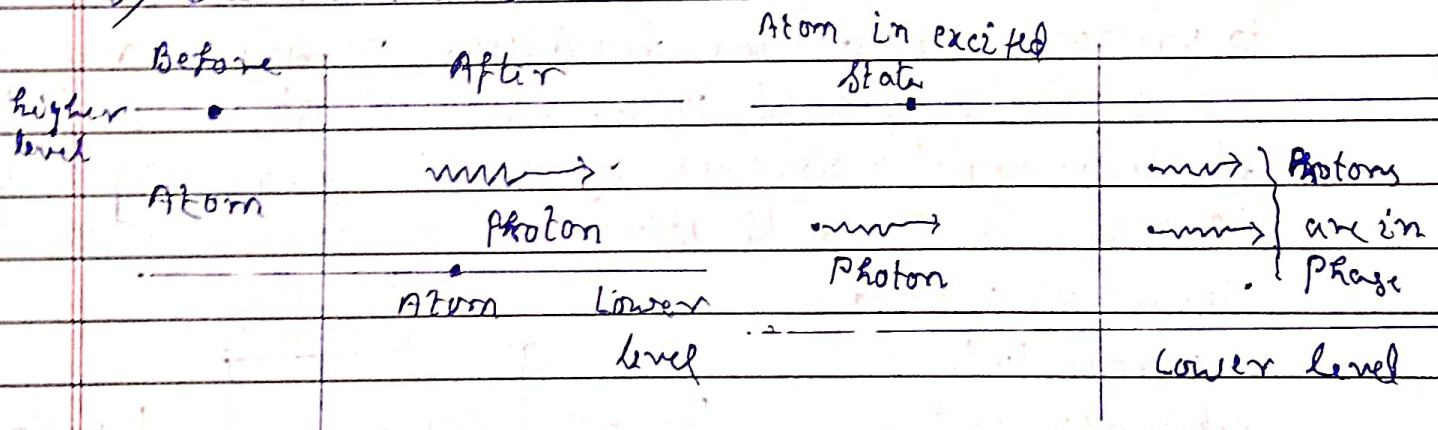 Before After Atom in excited
State
higher
level
Atom Photon Photons
Photon are in
Atom Lower Phase
level Lower level